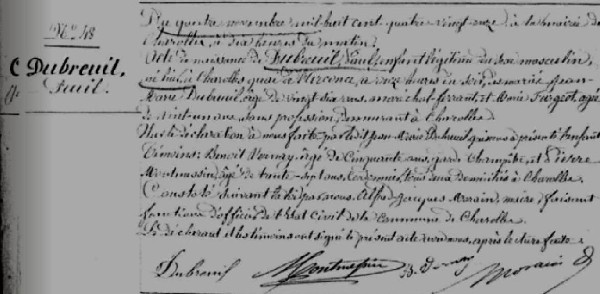 N° 48
Dubreuil,
Paul.
Du quatre novembre mil huit cent quatre vingt onze, à la mairie de
Charolles, à dix heures du matin.
Acte de naissance de Dubreuil, Paul, enfant légitime du sexe masculin,
né hier à Charolles, à onze heures du soir, de mariés Jean
Marie Dubreuil, âgé de vingt six ans, maréchal-ferrant, et Marie
de vingt un ans, sans profession, demeurant à Charolles.
Sur la déclaration à nous faite par ledit Jean Marie Dubreuil qui nous a présenté l'enfant
Témoins: Benoît âgé de cinquante ans, garde champêtre, et
âgé de trente sept ans, tous deux domiciliés à Charolles.
Constaté suivant la loi par nous, Alfred Jacques Morain, maire, faisant
fonctions d'officier de l'état civil de la commune de Charolles.
Le déclarant et les témoins ont signé le présent acte avec nous, après lecture faite.
Dubreuil
Morain